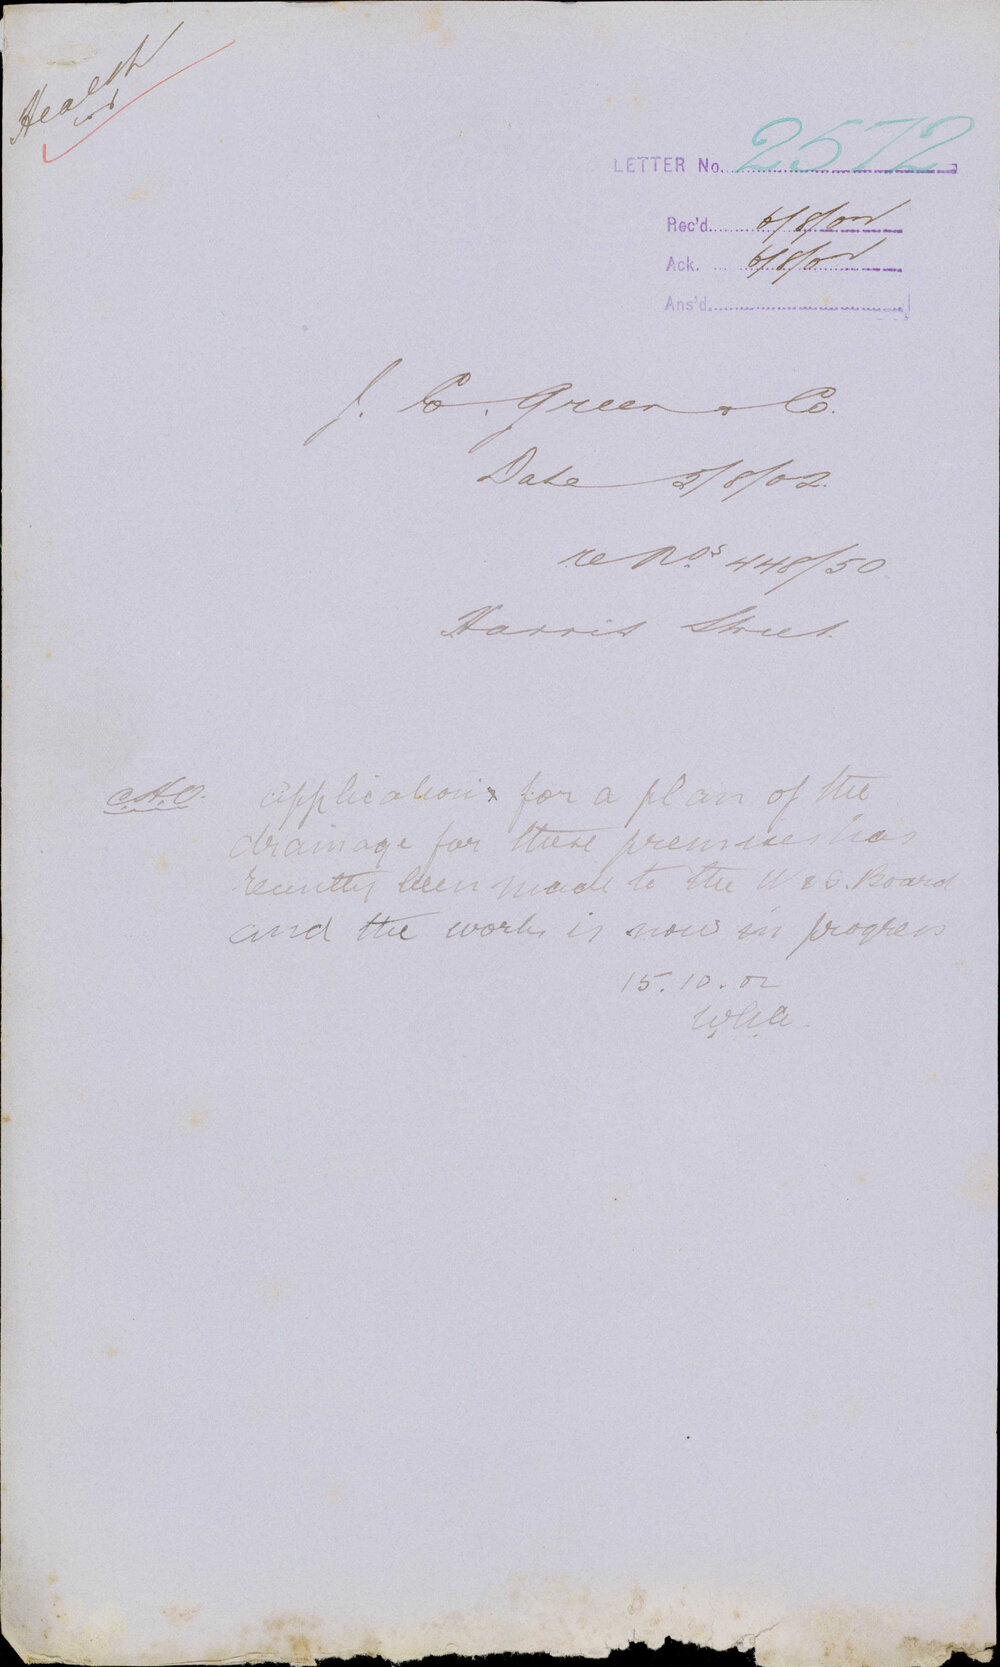 Health
LETTER No. 2572
Rec'd. 6/8/02
Ack. 6/8/02
Ans'd.
J. C. Green & Co.
Date 5/8/02.
re Nos 448/50
Harris Street.
C.H.O. application for a plan of the
drainage for these premises has
recently been made to the W & S. Board
and the work is now in progress
15.10.02